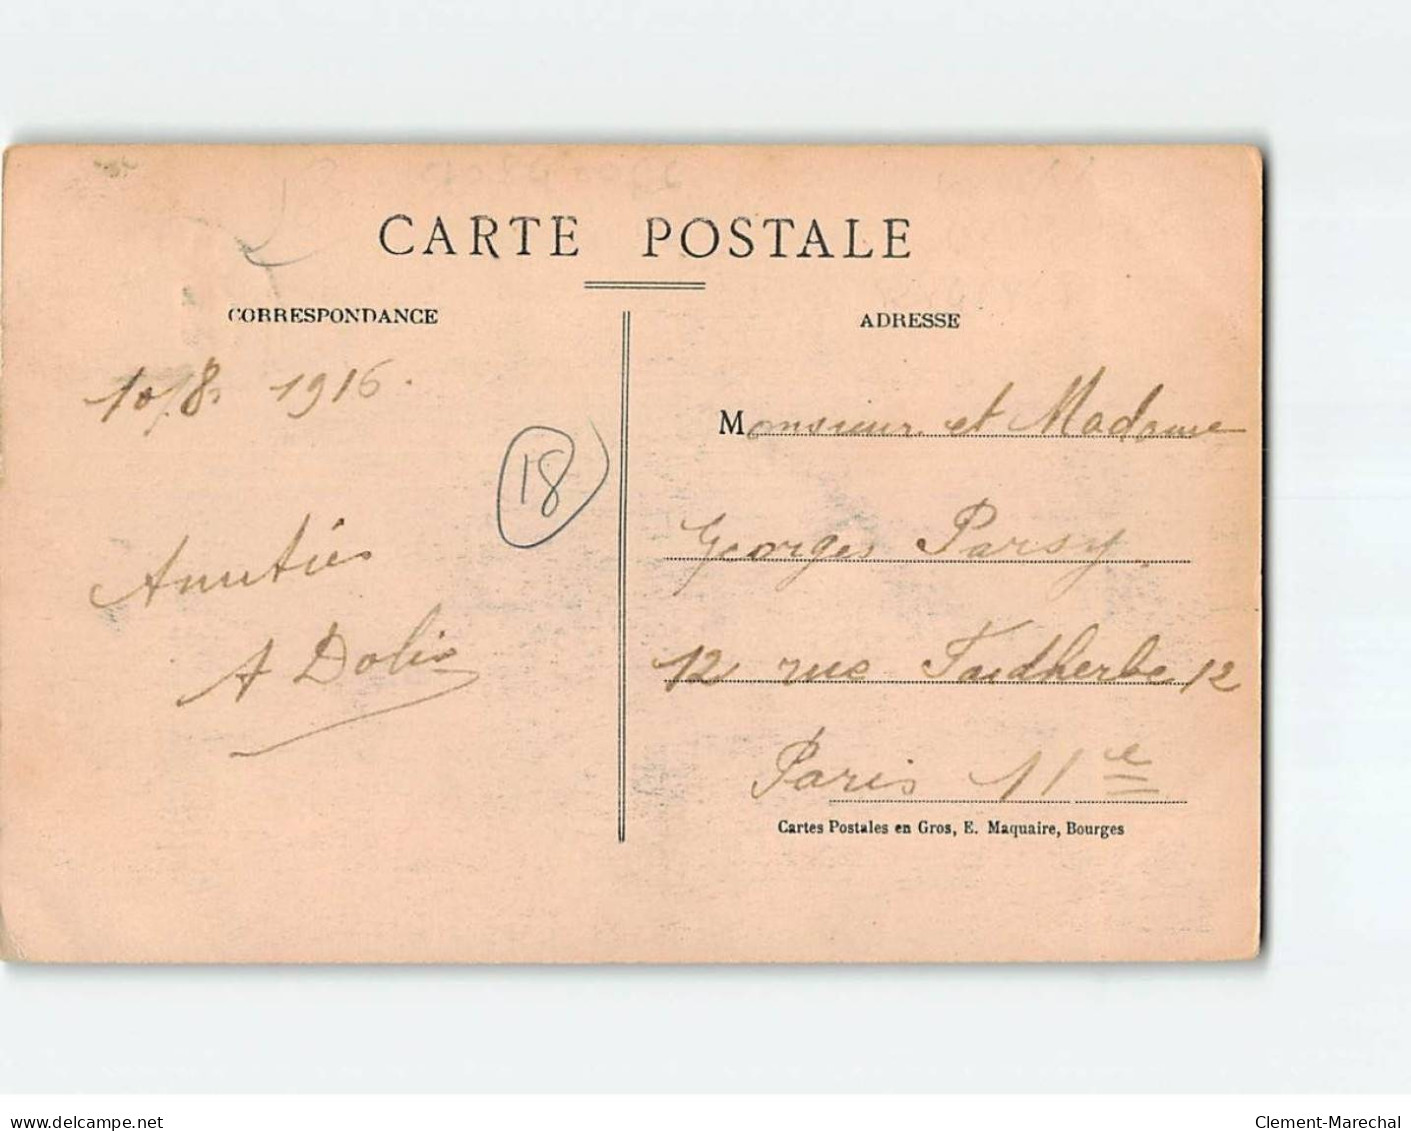 CARTE POSTALE
CORRESPONDANCE
10/8. 1916.
18
Amitiés
A Dolin
ADRESSE
Monsieur et Madame
Georges Parsy
12 rue Faidherbe 12
Paris 11e
Cartes Postales en Gros, E. Maquaire, Bourges
delcampe.net
Clement-Marechal